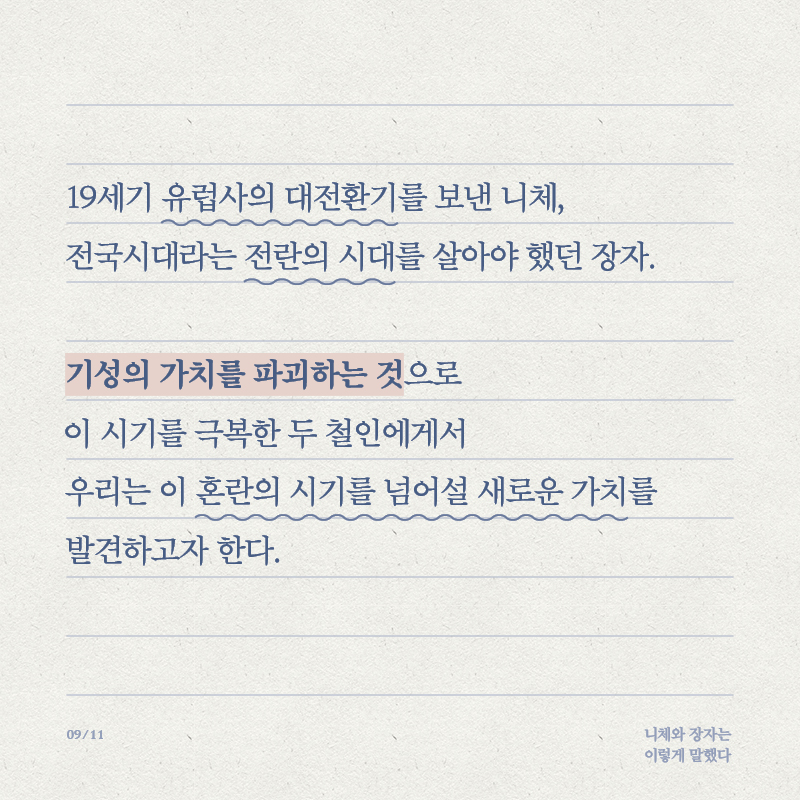 19세기 유럽사의 대전환기를 보낸 니체,
전국시대라는 전란의 시대를 살아야 했던 장자.
기성의 가치를 파괴하는 것으로
이 시기를 극복한 두 철인에게서
우리는 이 혼란의 시기를 넘어설 새로운 가치를
발견하고자 한다.
09/11
니체와 장자는
이렇게 말했다